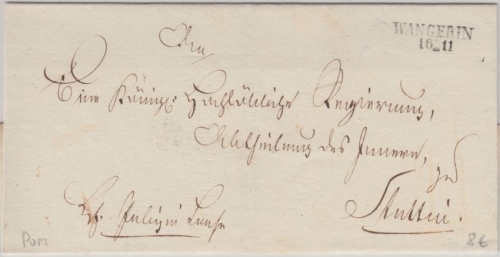 WANGERIN
16 11
An
Eine Königl. Hochlöbliche Regierung,
Abtheilung des Innern,
zu
Stettin.
Pom
8€